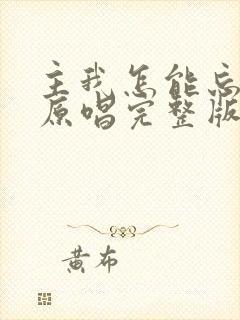 主我怎能忘
原唱完整版
黄布